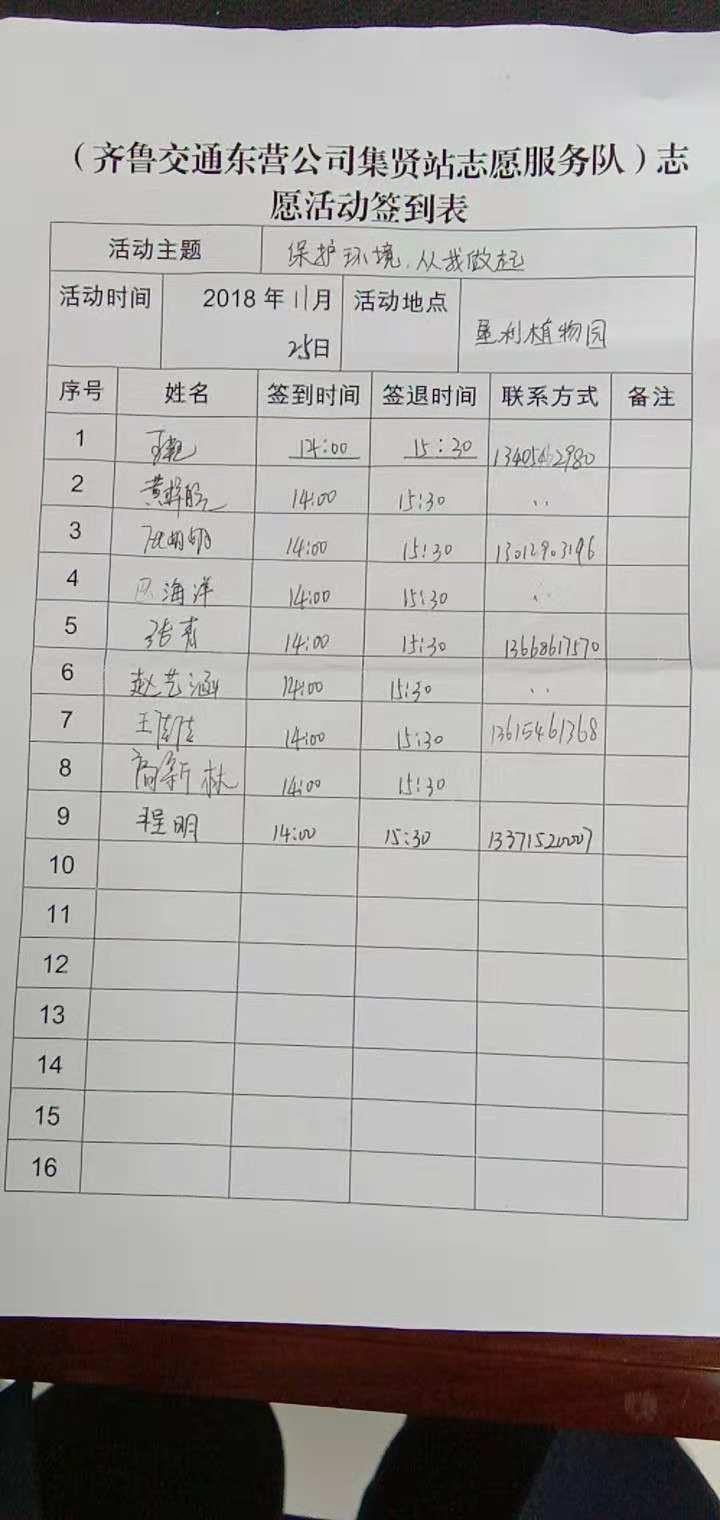 （齐鲁交通东营公司集贤站志愿服务队）志
愿活动签到表
活动主题 保护环境,从我做起
活动时间 2018年11月25日 活动地点 垦利植物园
序号 姓名 签到时间 签退时间 联系方式 备注
1 14:00 15:30
2 14:00 15:30 ..
3 14:00 15:30 13012903196
4 海洋 14:00 15:30 ..
5 张青 14:00 15:30 13668617570
6 赵艺涵 14:00 15:30 ..
7 王佳佳 14:00 15:30 13615461368
8 高新林 14:00 15:30
9 程明 14:00 15:30 13371520007
10
11
12
13
14
15
16